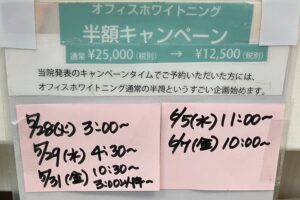 オフィスホワイトニング
半額キャンペーン
通常 ¥25,000(税別) → ¥12,500(税別)
当院発表のキャンペーンタイムでご予約いただいた方には、
オフィスホワイトニング通常の半額というすごい企画始めます。
5/28(火) 3:00~
5/29(水) 4:30~
5/31(金) 10:30~
3:00以降~
6/5(水) 11:00~
6/7(金) 10:00~